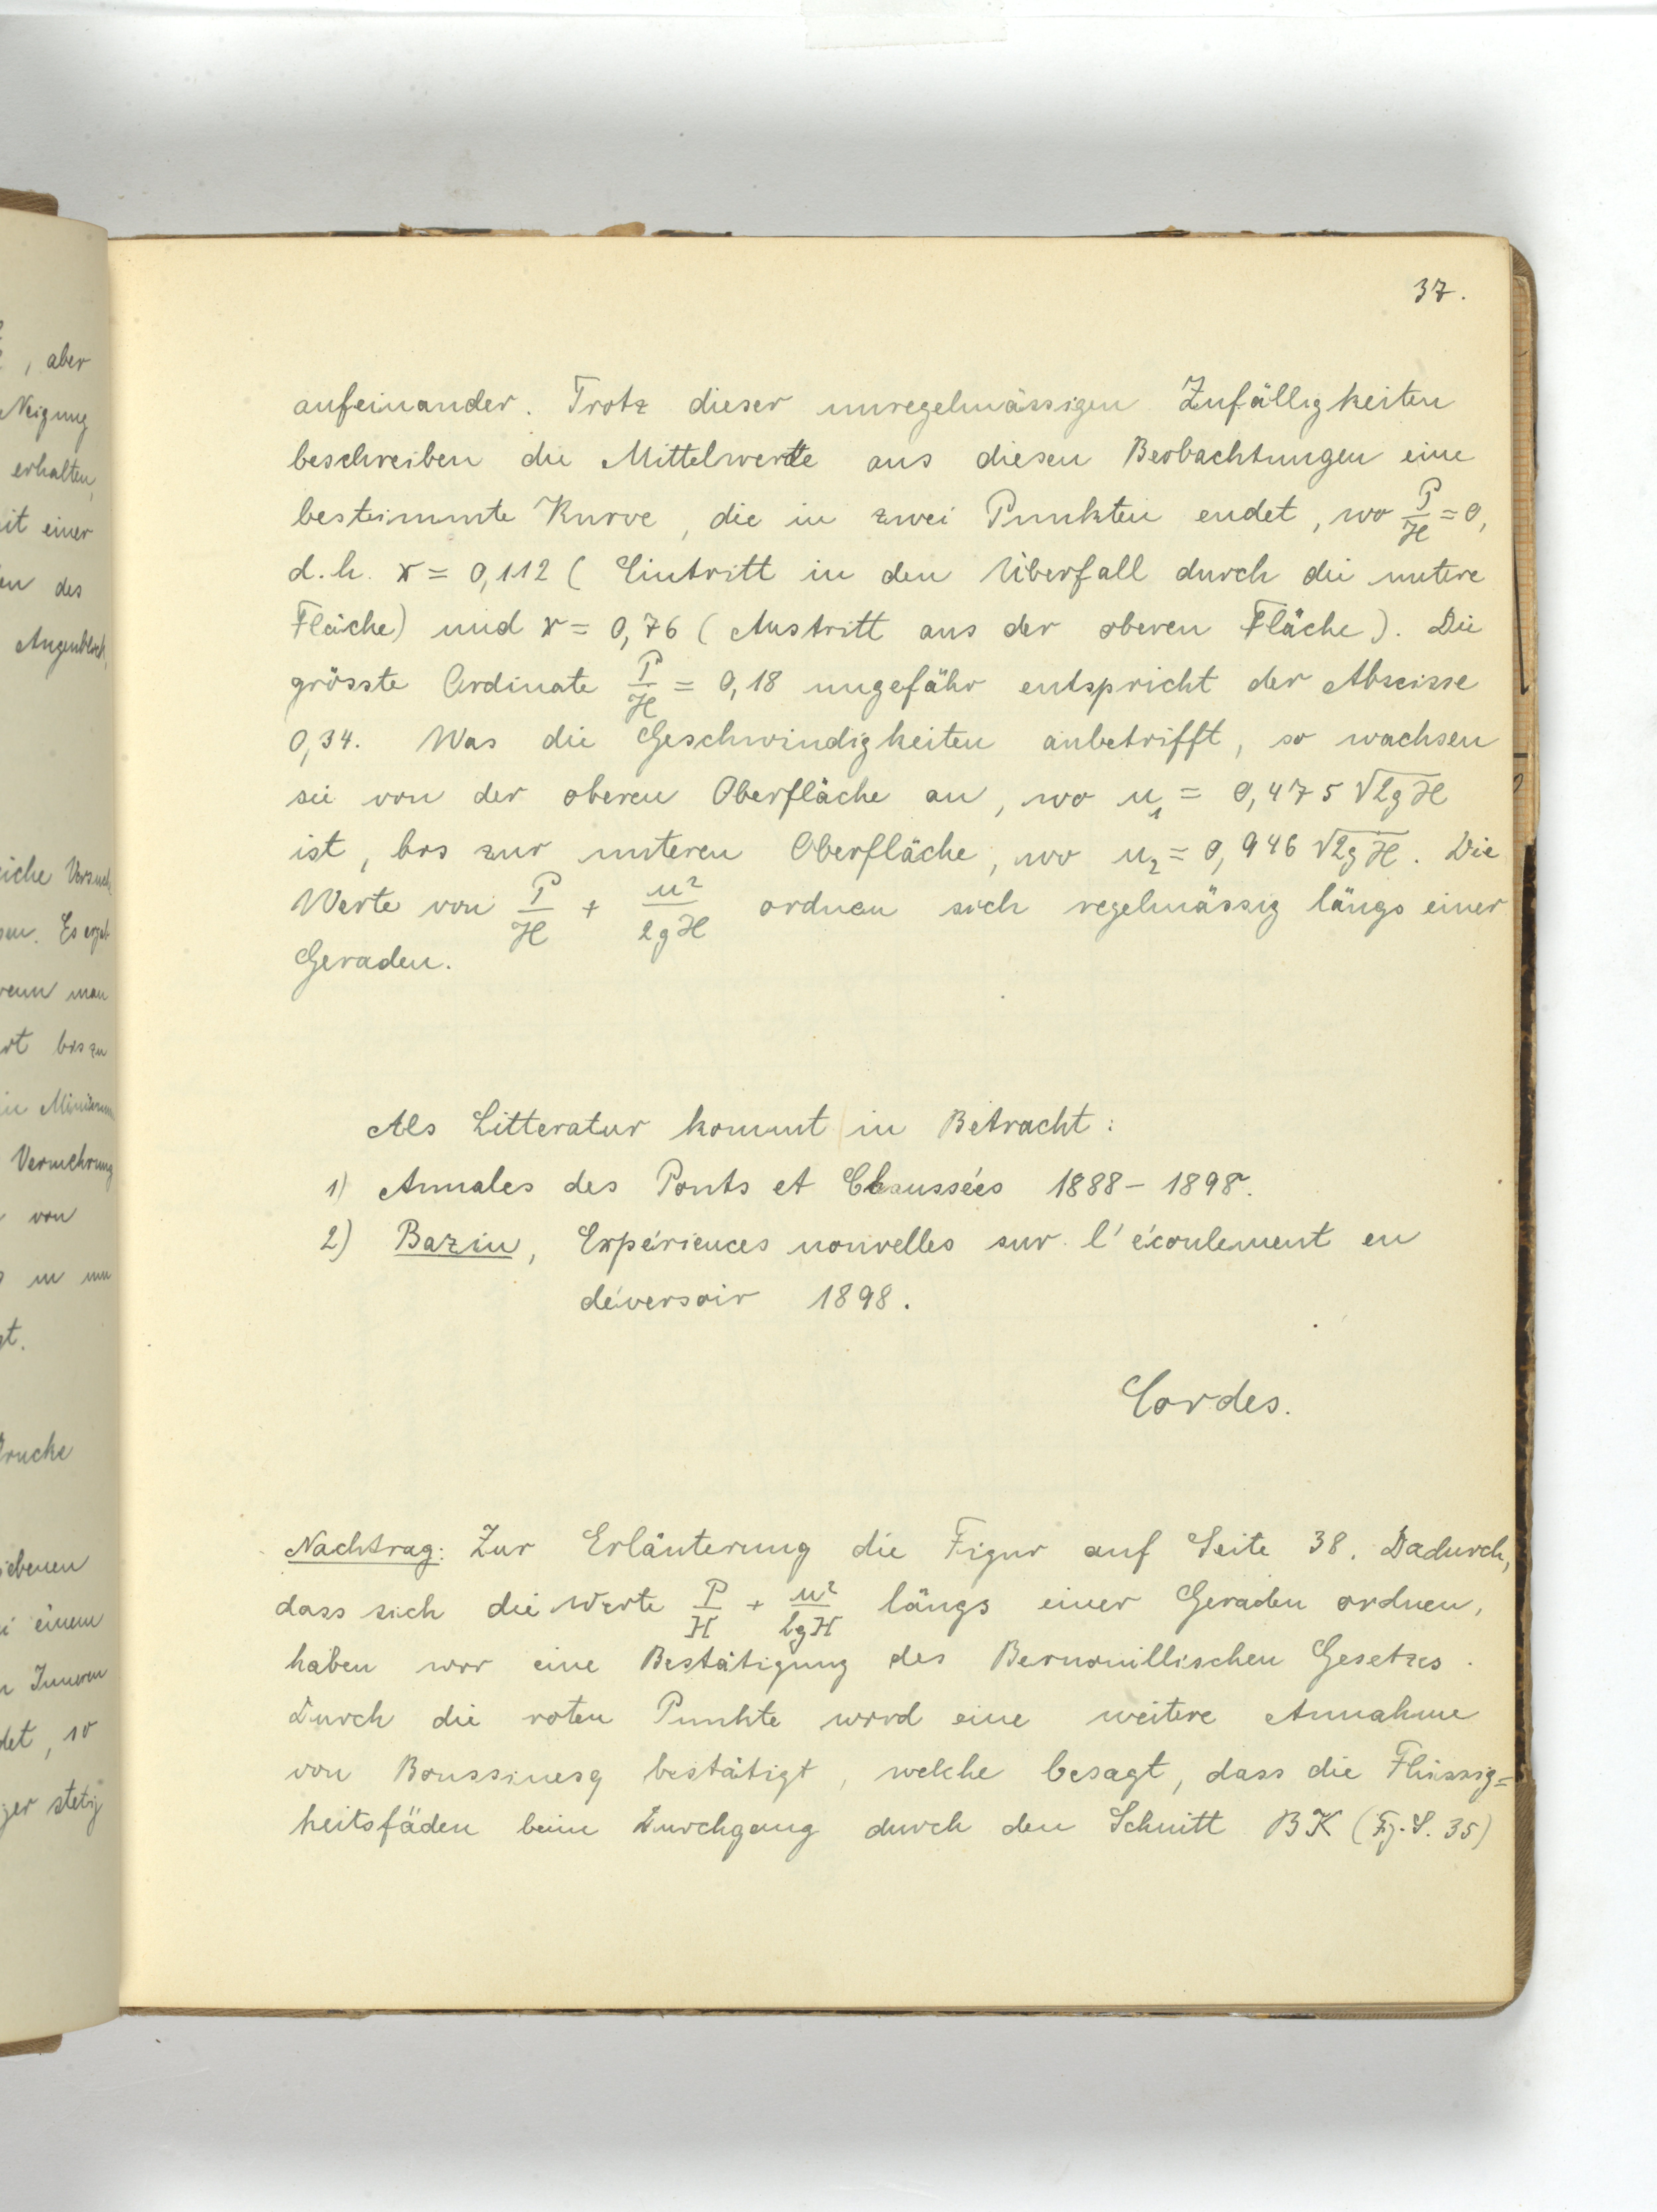 37.
aufeinander. Trotz dieser unregelmässigen Zufälligkeiten
beschreiben die Mittelwerte aus diesen Beobachtungen eine
bestimmte Kurve, die in zwei Punkten endet, wo P/H = 0,
d.h. x = 0,112 (Eintritt in den Überfall durch die untere
Fläche) und x = 0,76 (Austritt aus der oberen Fläche). Die
grösste Ordinate P/H = 0,18 ungefähr entspricht der Abscisse
0,34. Was die Geschwindigkeiten anbetrifft, so wachsen
sie von der oberen Oberfläche an, wo u₁ = 0,475 √2gH
ist, bis zur unteren Oberfläche, wo u₂ = 0,946 √2gH. Die
Werte von P/H + u²/2gH ordnen sich regelmässig längs einer
Geraden.
Als Litteratur kommt in Betracht:
1) Annales des Ponts et Chaussées 1888 – 1898.
2) Bazin, Expériences nouvelles sur l'écoulement en
déversoir 1898.
Cordes.
Nachtrag: Zur Erläuterung die Figur auf Seite 38. Dadurch,
dass sich die Werte P/H + u²/2gH längs einer Geraden ordnen,
haben wir eine Bestätigung des Bernouillischen Gesetzes.
Durch die roten Punkte wird eine weitere Annahme
von Boussinesq bestätigt, welche besagt, dass die Flüssig=
keitsfäden beim Durchgang durch den Schnitt BK (Fg. S. 35)
, aber
Neigung
erhalten,
einer
des
Augenblick,
Versuch
Es ergab
man
bis zu
Minimum
Vermehrung
von
einem
Inneren
stetig